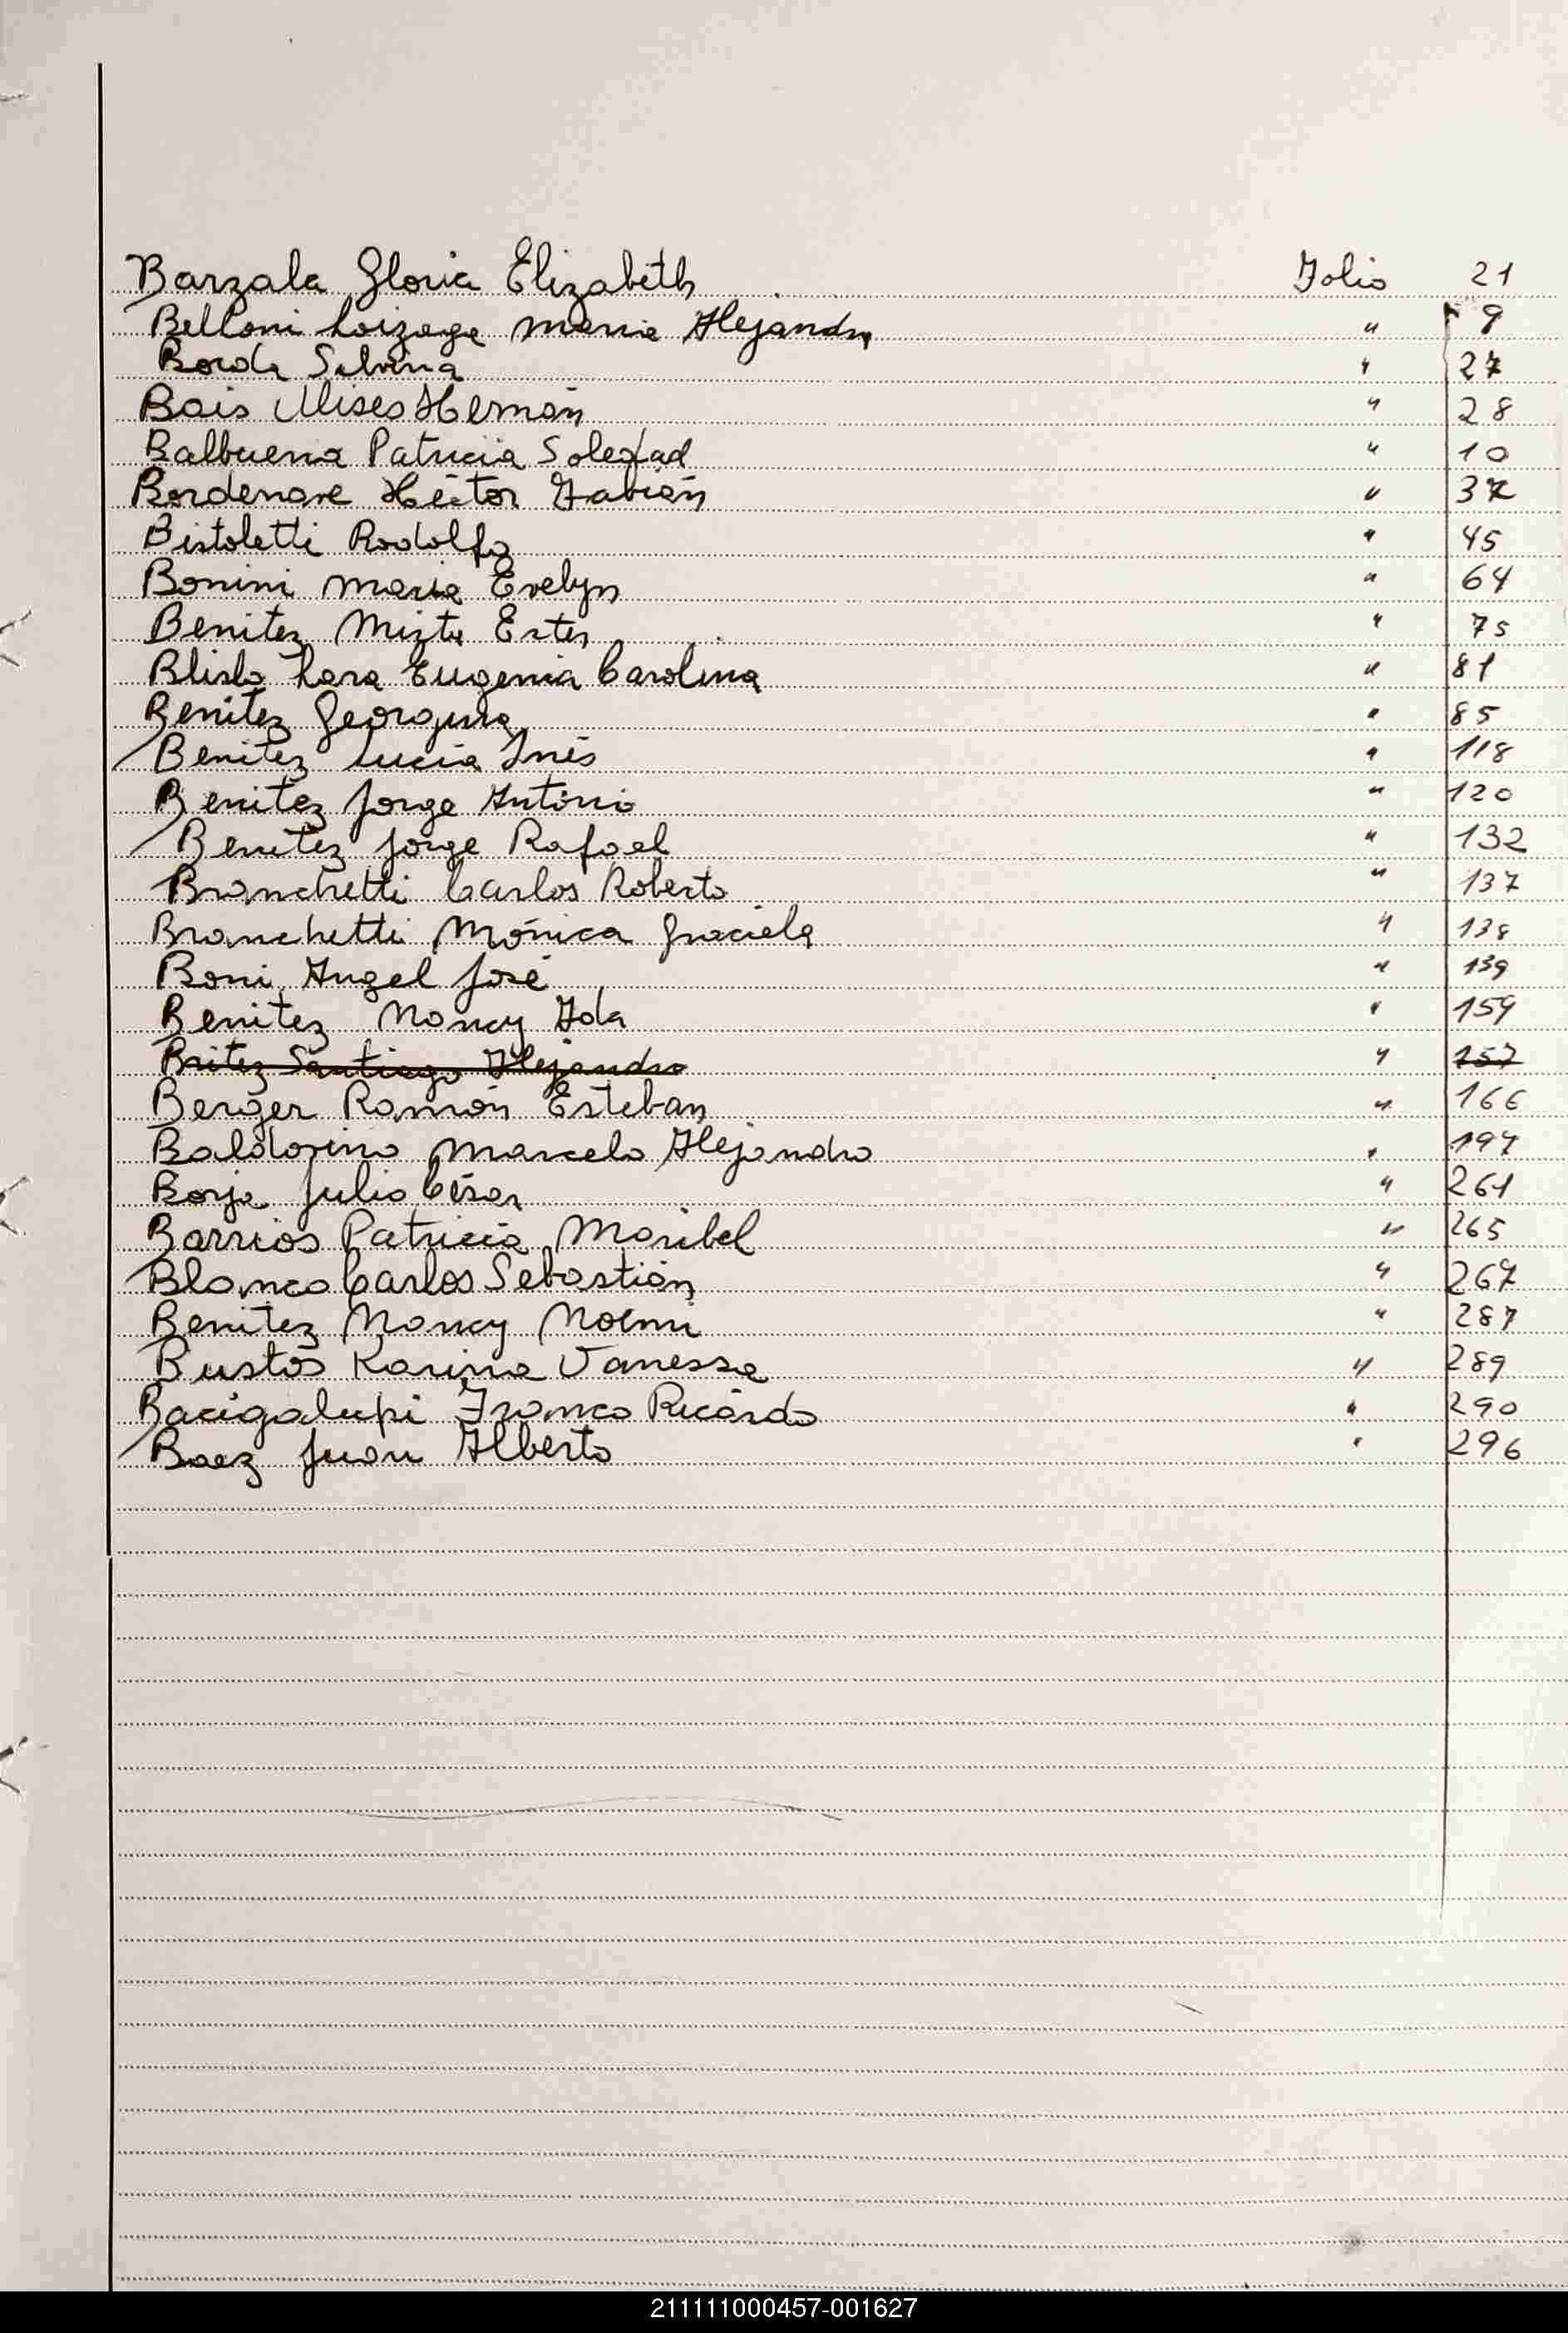 Barzala Gloria Elizabeth Folio 21
Belloni Loizaga Maria Alejandra " 9
Borda Silvina " 27
Bais Ulises Hernán " 28
Balbuena Patricia Soledad " 10
Bordenave Héctor Fabián " 37
Bistoletti Rodolfo " 45
Bonini Maria Evelyn " 64
Benitez Mirta Ester " 75
Lara Eugenia Carolina " 81
Benitez Georgina " 85
Benitez Lucia Inés " 118
Benitez Jorge Antonio " 120
Benitez Jorge Rafael " 132
Branchetti Carlos Roberto " 137
Branchetti Mónica Graciela " 138
Boni Angel José " 139
Benitez Nancy Ida " 159
Britez Santiago Alejandro " 157
Berger Ramón Esteban " 166
Baldovino Marcelo Alejandro " 197
Borja Julio César " 261
Barrios Patricia Maribel " 265
Blanco Carlos Sebastián " 267
Benitez Nancy Noemi " 287
Bustos Karina Vanessa " 289
Bacigalupi Franco Ricardo " 290
Baez Juan Alberto " 296
211111000457-001627